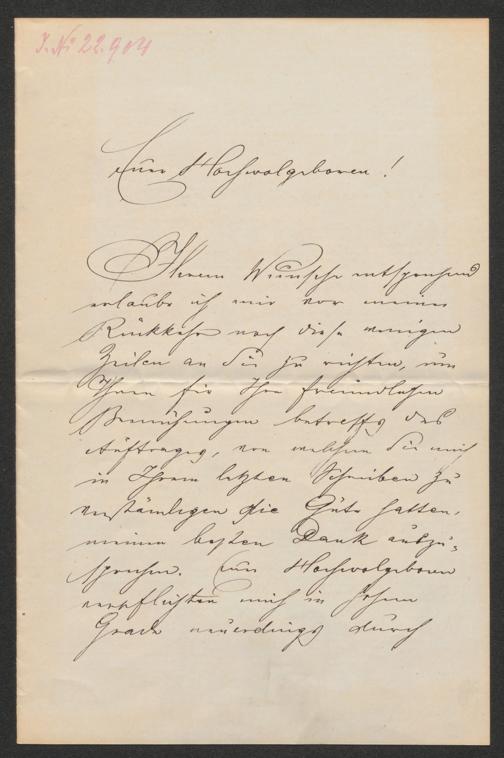 J. No 22.904
Euer Hochwolgeboren!
Ihrem Wunsche entsprechend
erlaube ich mir vor meiner
Rückkehr noch diese wenigen
Zeilen an Sie zu richten, um
Ihnen für Ihre freundlichen
Bemühungen betreffs des
Auftrages, von welchem Sie mich
in Ihrem letzten Schreiben zu
verständigen die Güte hatten,
meinen besten Dank auszu-
sprechen. Euer Hochwolgeboren
verpflichten mich in hohem
Grade neuerdings durch